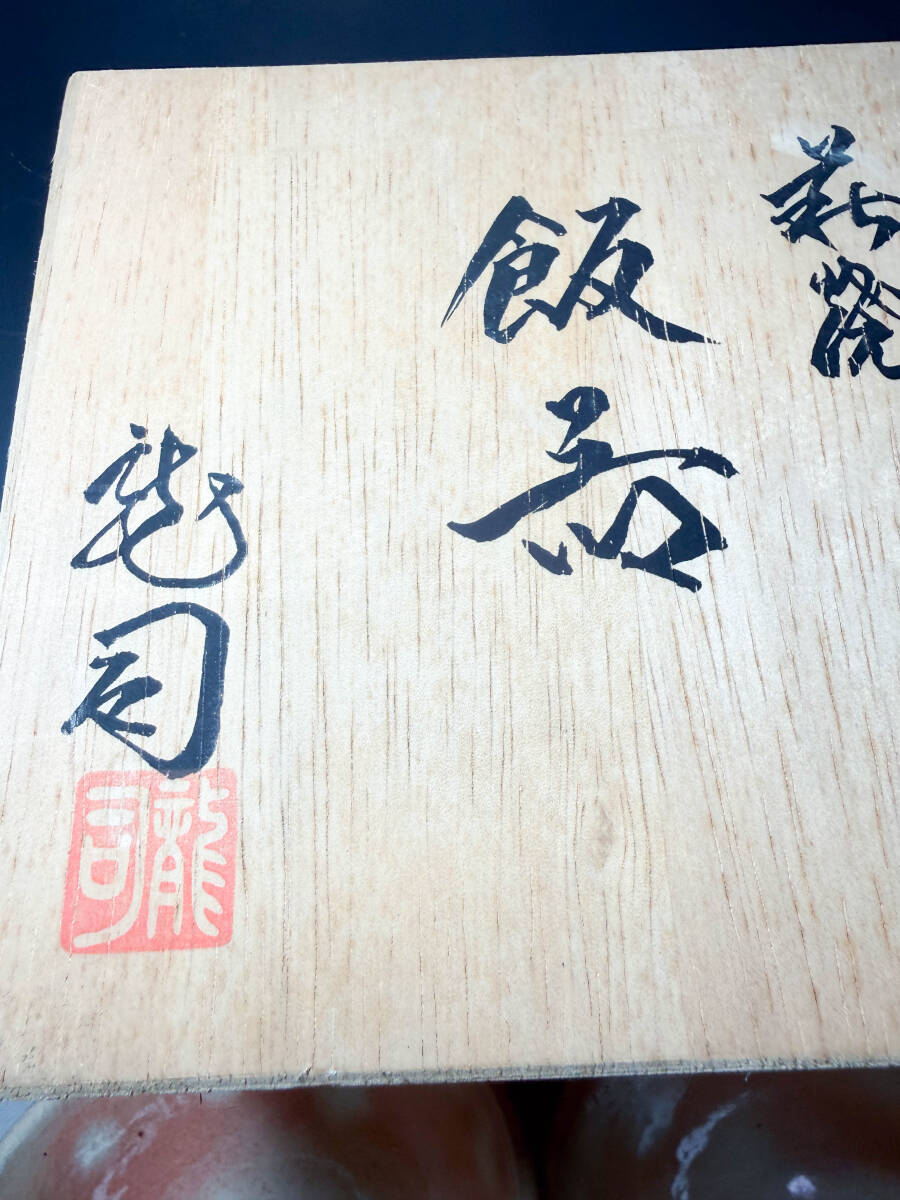 萩焼
飯器
龍司
龍司